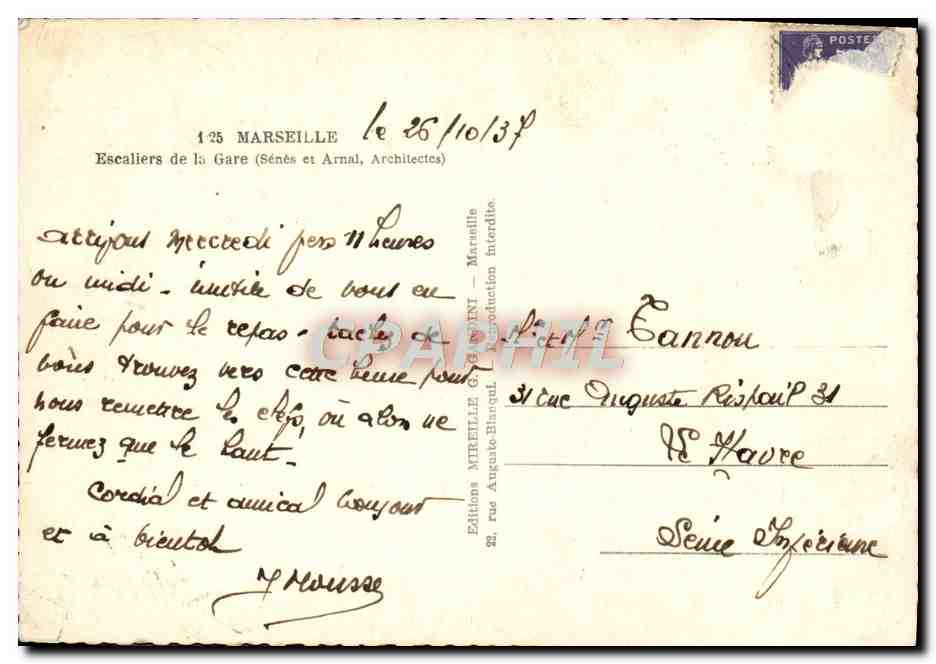 POSTE
125 MARSEILLE
le 26/10/37
Escaliers de la Gare (Sénès et Arnal, Architectes)
arrivons mercredi vers 11 heures
ou midi - inutile de vous en
faire pour le repas - tachez de
vous trouvez vers cette heure pour
nous remettre les clefs, ou alors ne
fermez que le haut -
Cordial et amical bonjour
et à bientot
Mousse
Editions MIREILLE G. - Marseille
22, rue Auguste-Blanqui. - Reproduction interdite.
CPAPHIL
Mr et Mme Tannou
31 rue Auguste 31
Le Havre
Seine Inférieure